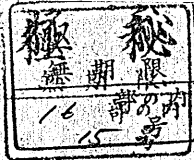 極秘
無期限
16部の内
15号